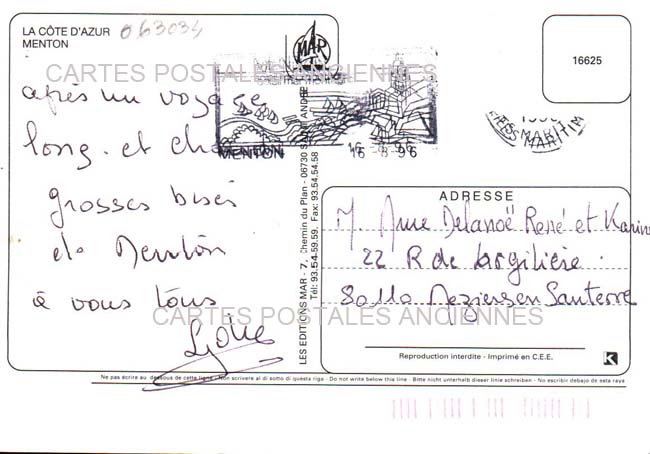 LA CÔTE D'AZUR
MENTON
063034
CARTES POSTALES ANCIENNES
après un voyage
long. et
grosses bises
de Menton
à vous tous
CARTES POSTALES ANCIENNES
MAR
MENTON
16 -8 96
16625
LES EDITIONS MAR - 7, Chemin du Plan - 06730 SAINT ANDRE
Tél: 93.54.59.59. Fax: 93.54.54.58
ADRESSE
M. Mme Delanoë René et Karine
22 R de Largilière.
80110 Mezieres en Santerre
Reproduction interdite - Imprimé en C.E.E.
K
Ne pas écrire au dessous de cette ligne - Non scrivere al di sotto di questa riga - Do not write below this line - Bitte nicht unterhalb dieser linie schreiben - No escribir debajo de esta raya